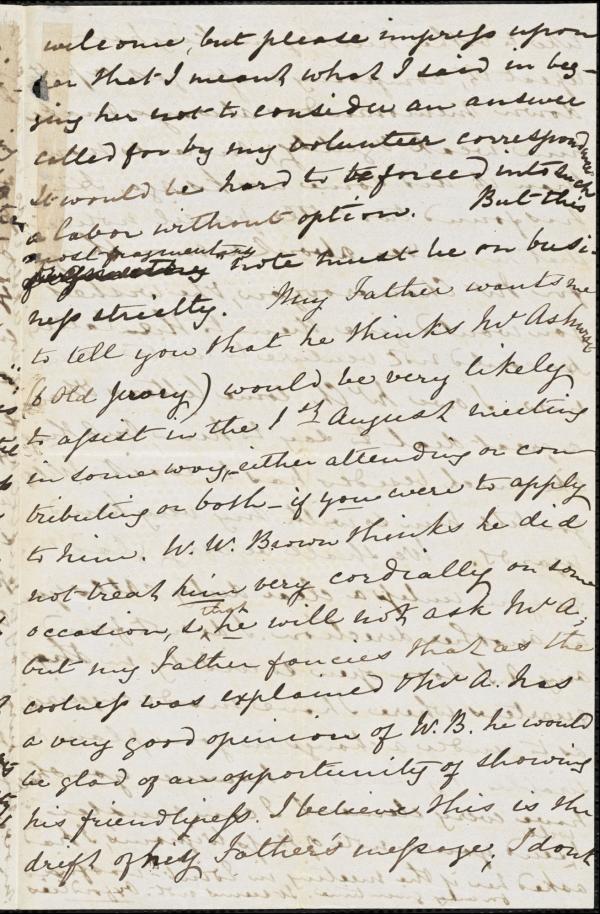 welcome, but please impress upon
her that I meant what I said in beg-
ging her not to consider an answer
called for by my volunteer correspondence
It would be hard to be forced into such
a labor without option. But this
most fragmentary
note must be on busi-
ness strictly. My Father wants me
to tell you that he thinks Mr Ashurst
(6 Old Jewry) would be very likely
to assist in the 1st August meeting
in some way, either attending or con
tributing or both - if you were to apply
to him. W. W. Brown thinks he did
not treat him very cordially on some
occasion, so that he will not ask Mr A,
but my Father fancies that as the
coolness was explained & Mr A. has
a very good opinion of W. B. he would
be glad of an opportunity of showing
his friendliness. I believe this is the
drift of my Father's message; I dont